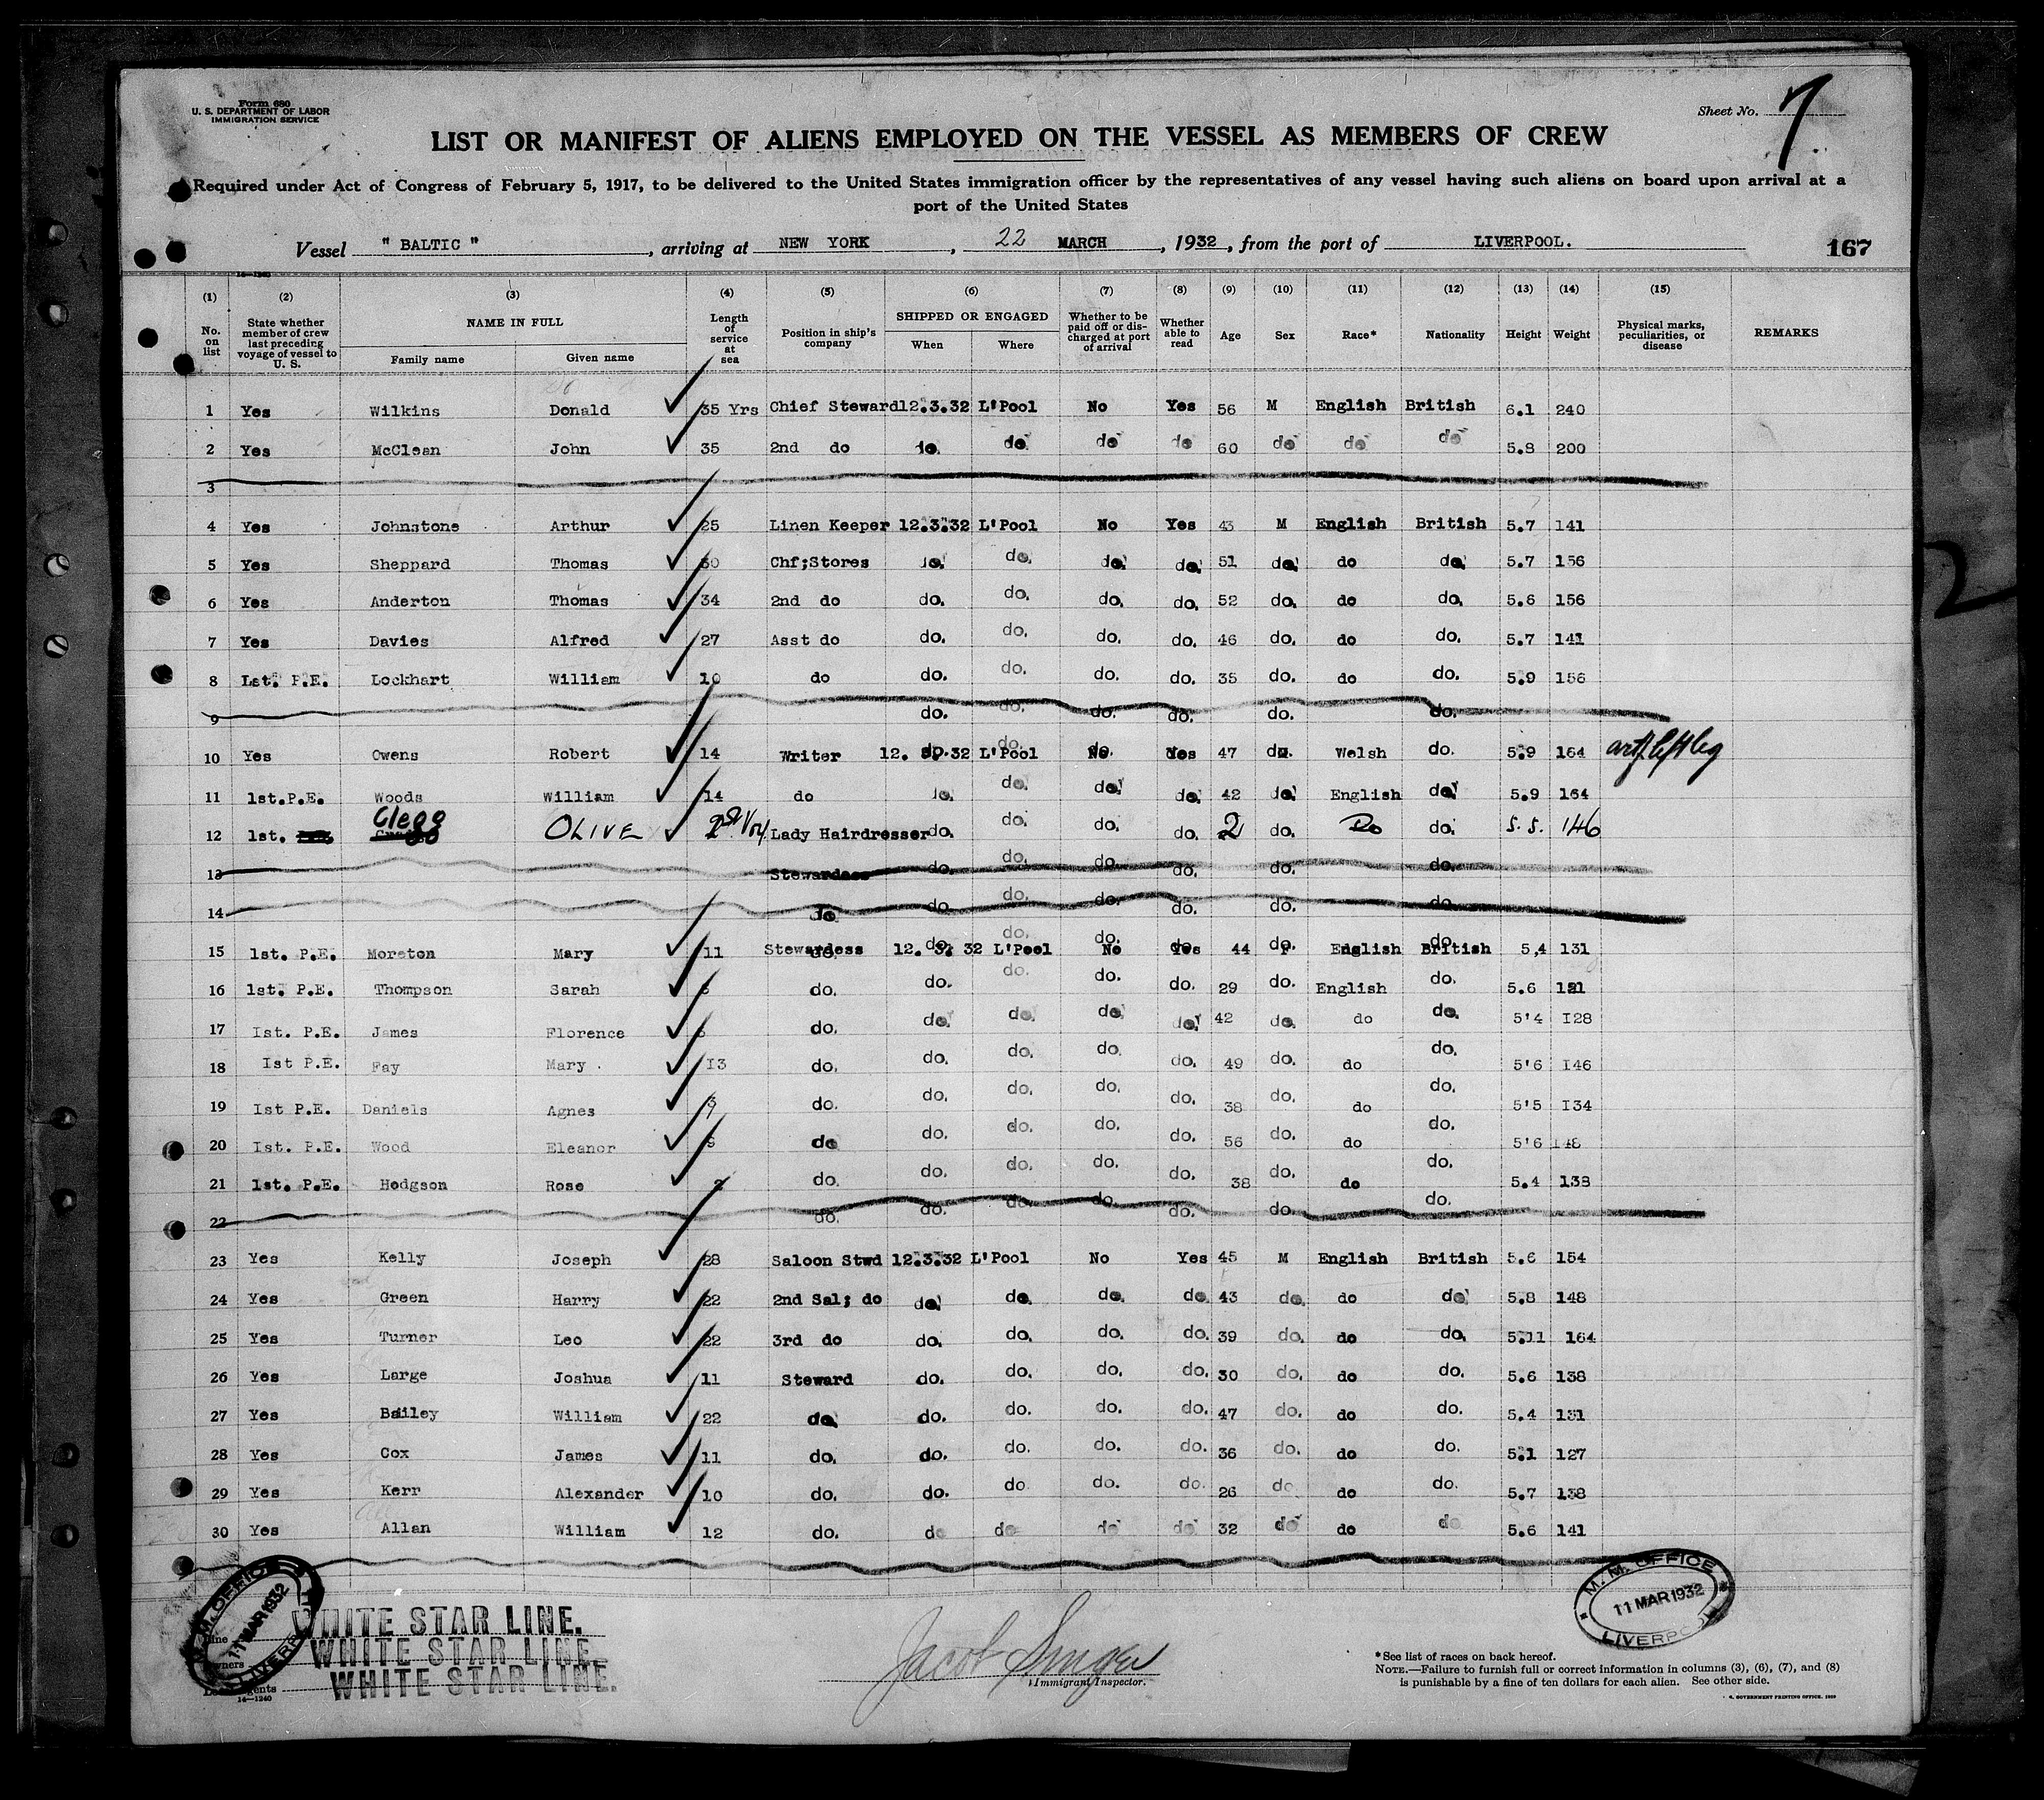 Form 680
U. S. DEPARTMENT OF LABOR
IMMIGRATION SERVICE
Sheet No. 7
LIST OR MANIFEST OF ALIENS EMPLOYED ON THE VESSEL AS MEMBERS OF CREW
Required under Act of Congress of February 5, 1917, to be delivered to the United States immigration officer by the representatives of any vessel having such aliens on board upon arrival at a
port of the United States
Vessel "BALTIC", arriving at NEW YORK, 22 MARCH, 1932, from the port of LIVERPOOL. 167
(1) No. on list (2) State whether member of crew last preceding voyage of vessel to U. S. (3) NAME IN FULL Family name Given name (4) Length of service at sea (5) Position in ship's company (6) SHIPPED OR ENGAGED When Where (7) Whether to be paid off or discharged at port of arrival (8) Whether able to read (9) Age (10) Sex (11) Race* (12) Nationality (13) Height (14) Weight (15) Physical marks, peculiarities, or disease REMARKS
1 Yes Wilkins Donald 35 Yrs Chief Steward 12.3.32 L'Pool No Yes 56 M English British 6.1 240
2 Yes McClean John 35 2nd do do. do. do do 60 do do do 5.8 200
3
4 Yes Johnstone Arthur 25 Linen Keeper 12.3.32 L'Pool No Yes 43 M English British 5.7 141
5 Yes Sheppard Thomas 30 Chf;Stores do. do. do. do. 51 do. do do. 5.7 156
6 Yes Anderton Thomas 34 2nd do do. do. do. do. 52 do. do do. 5.6 156
7 Yes Davies Alfred 27 Asst do do. do. do. do. 46 do. do do. 5.7 141
8 1st. P.E. Lockhart William 10 do do. do. do. do. 35 do. do do. 5.9 156
9 do. do. do. do. do. do.
10 Yes Owens Robert 14 Writer 12. 3.32 L'Pool No Yes 47 do. Welsh do. 5.9 164 artf. left leg
11 1st.P.E. Woods William 14 do do. do. do. do. 42 do. English do. 5.9 164
12 1st. Clegg OLIVE Lady Hairdresser do. do. do. do. 2 do. Do do. 5.5. 146
13 Stewardess do. do. do. do. do. do.
14 do. do. do. do. do. do. do.
15 1st. P.E. Moreton Mary 11 Stewardess 12. 3. 32 L'Pool No Yes 44 F English British 5,4 131
16 1st. P.E. Thompson Sarah do. do. do. do. do. 29 do. English do. 5.6 121
17 Ist. P.E. James Florence do. do. do. do. do. 42 do. do do. 5'4 I28
18 Ist P.E. Fay Mary . I3 do. do. do. do. do. 49 do. do do. 5'6 I46
19 Ist P.E. Daniels Agnes do. do. do. do. do. 38 do. do do. 5'5 I34
20 Ist. P.E. Wood Eleanor do do. do. do. do. 56 do. do do. 5'6 I48
21 1st. P.E. Hodgson Rose 2 do. do. do. do. do. 38 do. do do. 5.4 138
22 do. do. do. do. do. do. do.
23 Yes Kelly Joseph 28 Saloon Stwd 12.3.32 L'Pool No Yes 45 M English British 5.6 154
24 Yes Green Harry 22 2nd Sal; do do. do. do. do. 43 do. do do. 5.8 148
25 Yes Turner Leo 22 3rd do do. do. do. do. 39 do. do do. 5.11 164
26 Yes Large Joshua 11 Steward do. do. do. do. 30 do. do do. 5.6 138
27 Yes Bailey William 22 do. do. do. do. do. 47 do. do do. 5.4 131
28 Yes Cox James 11 do. do. do. do. do. 36 do. do do. 5.1 127
29 Yes Kerr Alexander 10 do. do. do do. do. 26 do do do. 5.7 138
30 Yes Allan William 12 do. do do do do 32 do do do 5.6 141
M. M. OFFICE
11 MAR 1932
LIVERPOOL
WHITE STAR LINE.
WHITE STAR LINE.
WHITE STAR LINE.
14—1240
Jacob Singer
Immigrant Inspector.
M. M. OFFICE
11 MAR 1932
LIVERPOOL
*See list of races on back hereof.
NOTE.—Failure to furnish full or correct information in columns (3), (6), (7), and (8)
is punishable by a fine of ten dollars for each alien. See other side.
GOVERNMENT PRINTING OFFICE